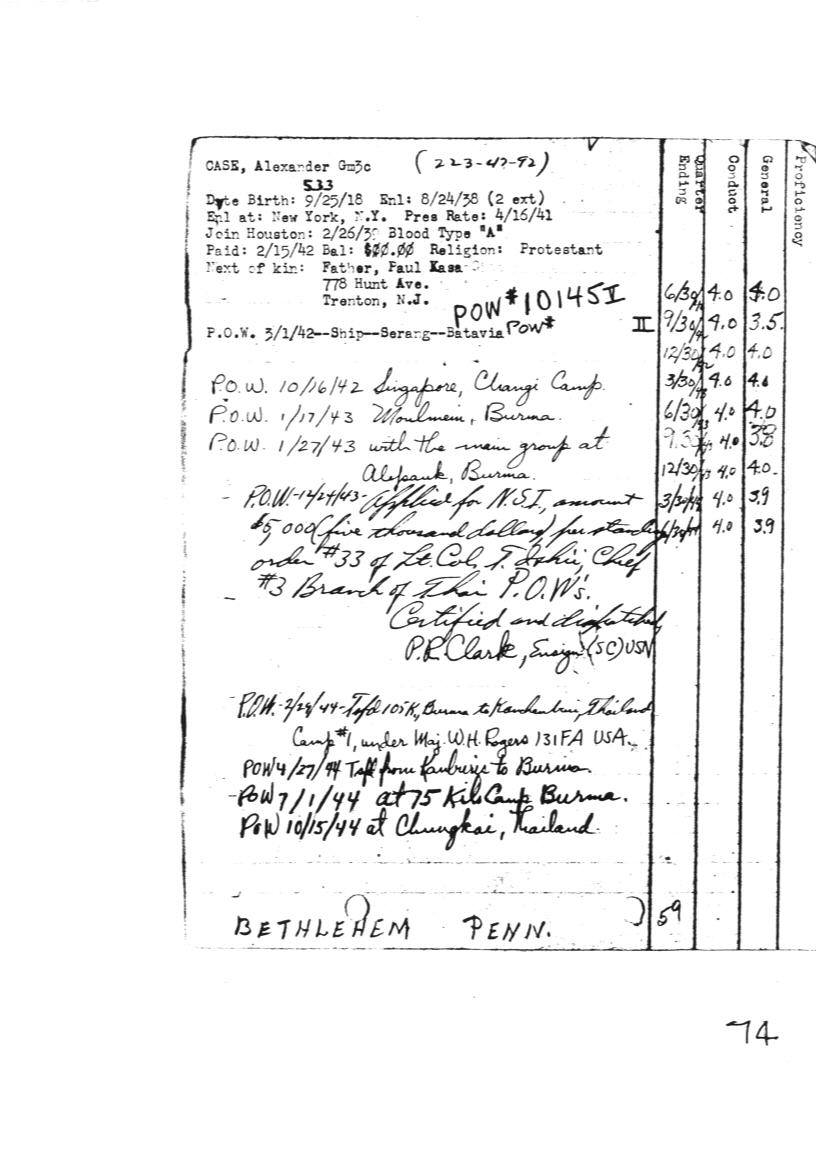 CASE, Alexander Gm3c (223-47-92)
533
Date Birth: 9/25/18 Enl: 8/24/38 (2 ext)
Enl at: New York, N.Y. Pres Rate: 4/16/41
Join Houston: 2/26/39 Blood Type "A"
Paid: 2/15/42 Bal: $00.00 Religion: Protestant
Next of kin: Father, Paul Kasa
778 Hunt Ave.
Trenton, N.J.
POW #10145 I
P.O.W. 3/1/42--Ship--Serang--Batavia POW# II
P.O.W. 10/16/42 Singapore, Changi Camp.
P.O.W. 1/17/43 Moulmein, Burma.
P.O.W. 1/27/43 with the main group at
Alepauk, Burma.
- P.O.W.-12/24/43-Applied for N.S.I., amount
$5,000 (five thousand dollars) per standing
order #33 of Lt. Col. T. Ishii, Chief
#3 Branch of Thai P.O.W's.
Certified and dispatched,
P.R. Clark, Ensign (SC) USN
P.O.W.-2/29/44-Tsfd 105K, Burma to Thailand
Camp #1, under Maj. W.H. Rogers 131FA USA.
POW 4/27/44 Tsf from to Burma.
-POW 7/1/44 at 75 Kilo Camp Burma.
POW 10/15/44 at Chungkai, Thailand.
BETHLEHEM PENN.
Quarter Ending Conduct General Proficiency
6/30 4.0 4.0
9/30/42 4.0 3.5.
12/30/42 4.0 4.0
3/30/43 4.0 4.0
6/30/43 4.0 4.0
9.30/43 4.0 3.8
12/30/43 4.0 4.0.
3/30/44 4.0 3.9
6/30/44 4.0 3.9
59
74